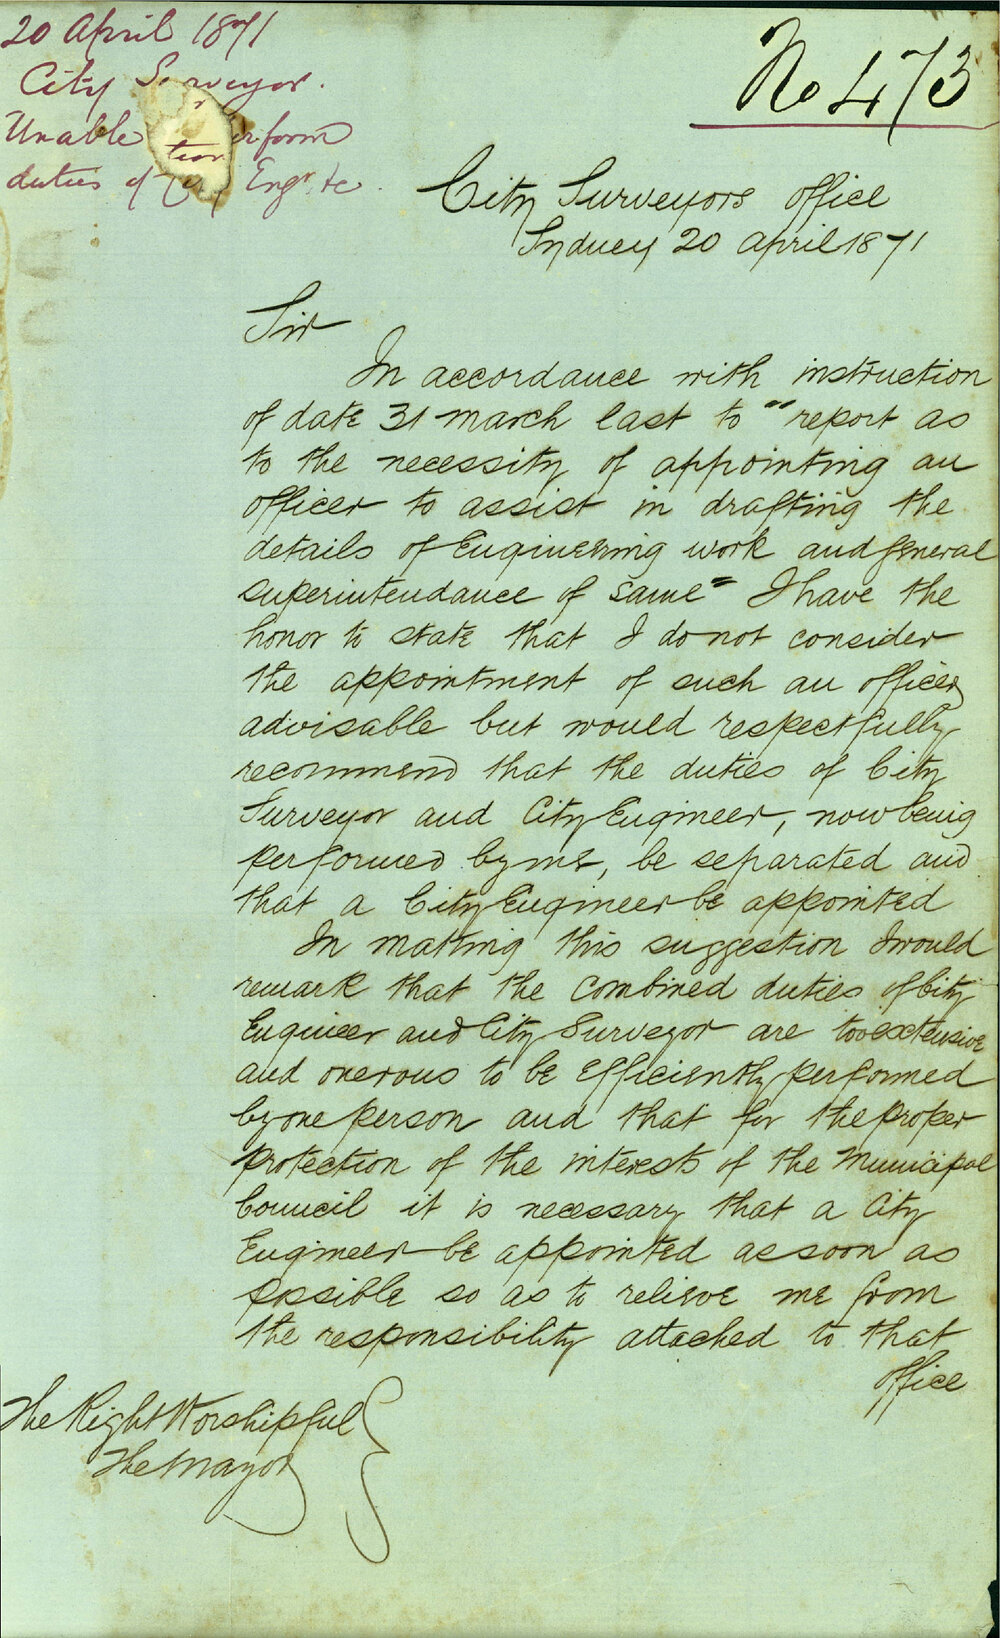 20 April 1871
City Surveyor.
Unable form
duties of City Engr. &c.
tion
No 473
City Surveyors office
Sydney 20 April 1871
Sir
In accordance with instruction
of date 31 March last to "report as
to the necessity of appointing an
officer to assist in drafting the
details of Engineering work and general
superintendance of same" I have the
honor to state that I do not consider
the appointment of such an officer
advisable but would respectfully
recommend that the duties of City
Surveyor and City Engineer, now being
performed by me, be separated and
that a City Engineer be appointed
In making this suggestion I would
remark that the combined duties of City
Engineer and City Surveyor are too extensive
and onerous to be efficiently performed
by one person and that for the proper
protection of the interests of the Municipal
Council it is necessary that a City
Engineer be appointed as soon as
possible so as to relieve me from
the responsibility attached to that
office
The Right Worshipful
The Mayor